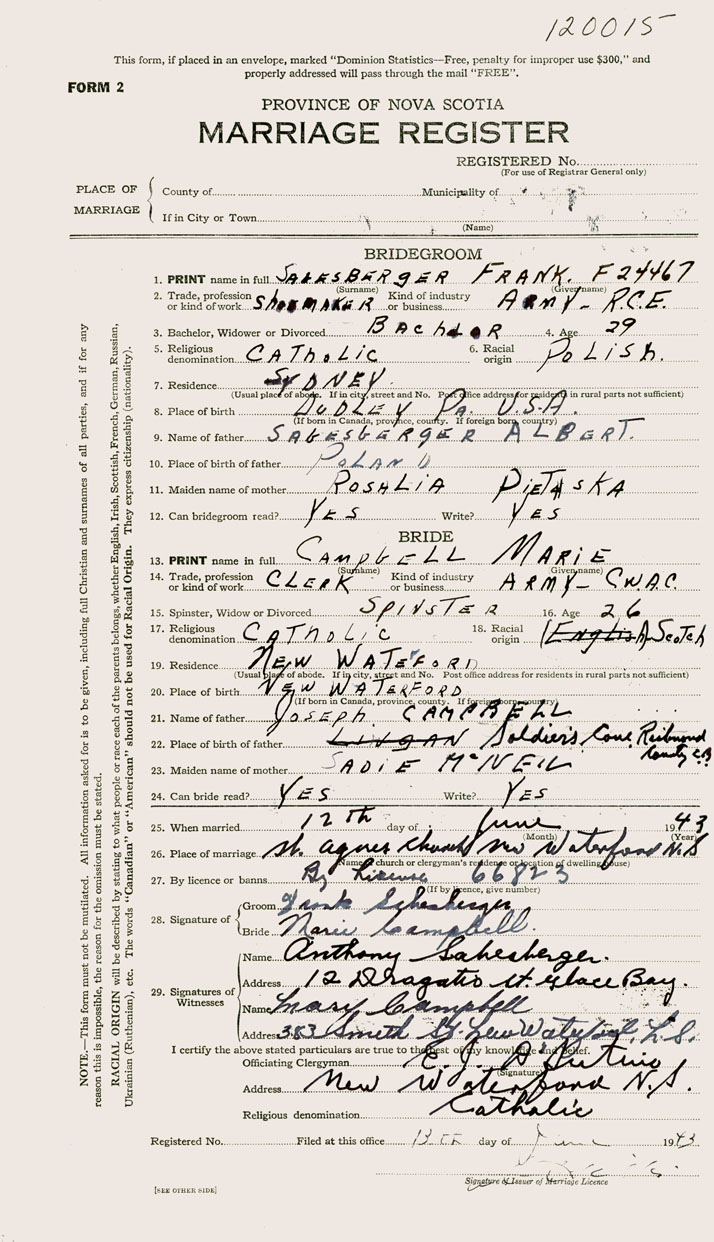 120015
This form, if placed in an envelope, marked "Dominion Statistics—Free, penalty for improper use $300," and
properly addressed will pass through the mail "FREE".
FORM 2
PROVINCE OF NOVA SCOTIA
MARRIAGE REGISTER
REGISTERED No.
(For use of Registrar General only)
PLACE OF MARRIAGE
County of Municipality of
If in City or Town
(Name)
NOTE.—This form must not be mutilated. All information asked for is to be given, including full Christian and surnames of all parties, and if for any
reason this is impossible, the reason for the omission must be stated.
RACIAL ORIGIN will be described by stating to what people or race each of the parents belongs, whether English, Irish, Scottish, French, German, Russian,
Ukrainian (Ruthenian), etc. The words "Canadian" or "American" should not be used for Racial Origin. They express citizenship (nationality).
BRIDEGROOM
1. PRINT name in full SALESBERGER FRANK. F 24467
(Surname) (Given name)
2. Trade, profession or kind of work SHOEMAKER Kind of industry or business ARMY - R.C.E.
3. Bachelor, Widower or Divorced BACHLOR 4. Age 29
5. Religious denomination CATHOLIC 6. Racial origin POLISH.
7. Residence SYDNEY.
(Usual place of abode. If in city, street and No. Post office address for residents in rural parts not sufficient)
8. Place of birth DUDLEY PA. U.S.A.
(If born in Canada, province, county. If foreign born, country)
9. Name of father SALESBERGER ALBERT.
10. Place of birth of father POLAND
11. Maiden name of mother ROSALIA PIETASKA
12. Can bridegroom read? YES Write? YES
BRIDE
13. PRINT name in full CAMPBELL MARIE
(Surname) (Given name)
14. Trade, profession or kind of work CLERK Kind of industry or business ARMY - C.W.A.C.
15. Spinster, Widow or Divorced SPINSTER 16. Age 26
17. Religious denomination CATHOLIC 18. Racial origin English Scotch
19. Residence NEW WATEFORD
(Usual place of abode. If in city, street and No. Post office address for residents in rural parts not sufficient)
20. Place of birth NEW WATERFORD
(If born in Canada, province, county. If foreign born, country)
21. Name of father JOSEPH CAMPBELL
22. Place of birth of father LINGAN Soldiers Cove Richmond County C.B
23. Maiden name of mother SADIE McNEIL
24. Can bride read? YES Write? YES
25. When married 12 TH day of June 1943
(Month) (Year)
26. Place of marriage St. Agnes Church New Waterford N.S
(Name of church or clergyman's residence or location of dwelling house)
27. By licence or banns By License 66823
(If by licence, give number)
28. Signature of
Groom Frank Salesberger
Bride Marie Campbell.
29. Signatures of Witnesses
Name Anthony Salesberger.
Address 12 St. Glace Bay.
Name Mary Campbell
Address 383 Smith St. New Waterford, N.S.
I certify the above stated particulars are true to the best of my knowledge and belief.
Officiating Clergyman
(Signature)
Address New Waterford N.S.
Religious denomination Catholic
Registered No. Filed at this office 13th day of June 1943
Signature of Issuer of Marriage Licence
[SEE OTHER SIDE]